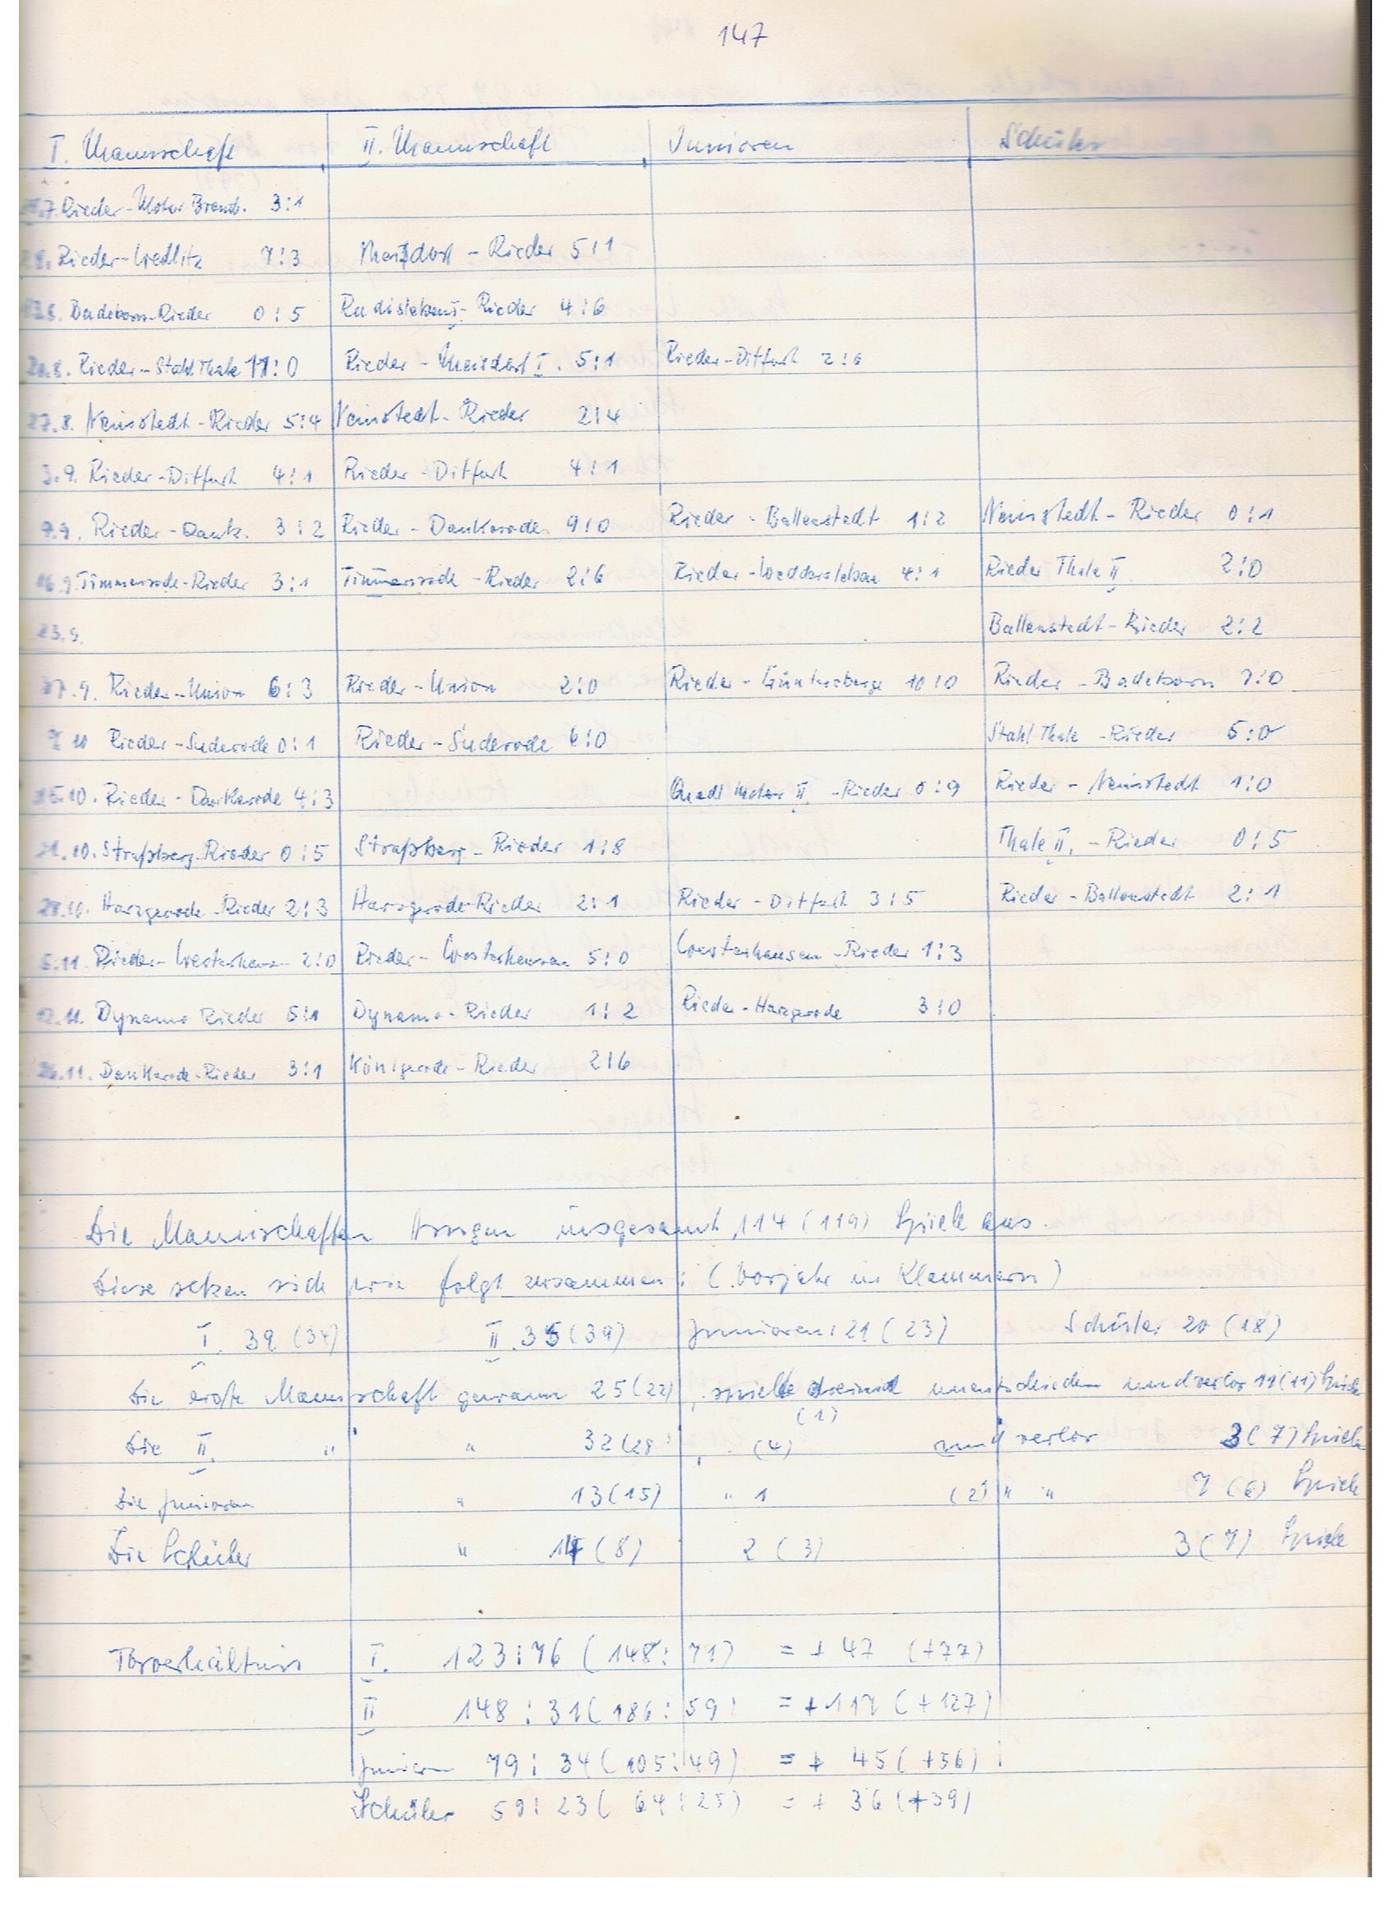 147
I. Mannschaft II. Mannschaft Junioren Schüler
Rieder-Motor Brandb. 3:1
Rieder-Wedlitz 7:3 Meisdorf - Rieder 5:1
Badeborn-Rieder 0:5 Radisleben I - Rieder 4:6
20.8. Rieder-Stahl Thale 11:0 Rieder - Meisdorf I. 5:1 Rieder-Ditfurt 2:6
27.8. Neinstedt-Rieder 5:4 Neinstedt-Rieder 2:4
3.9. Rieder-Ditfurt 4:1 Rieder-Ditfurt 4:1
9.9. Rieder-Dank. 3:2 Rieder-Dankerode 9:0 Rieder - Ballenstedt 1:2 Neinstedt-Rieder 0:1
16.9. Timmenrode-Rieder 3:1 Timmenrode-Rieder 2:6 Rieder-Weddersleben 4:1 Rieder Thale II 2:0
23.9. Ballenstedt-Rieder 2:2
27.9. Rieder-Union 6:3 Rieder-Union 2:0 Rieder-Güntersberge 10:0 Rieder-Badeborn 7:0
10 Rieder-Suderode 0:1 Rieder-Suderode 6:0 Stahl Thale-Rieder 5:0
15.10. Rieder-Dankerode 4:3 Quedl Motor II.-Rieder 0:9 Rieder-Neinstedt 1:0
21.10. Straßberg-Rieder 0:5 Straßberg-Rieder 1:8 Thale II.-Rieder 0:5
28.10. Harzgerode-Rieder 2:3 Harzgerode-Rieder 2:1 Rieder-Ditfurt 3:5 Rieder-Ballenstedt 2:1
5.11. Rieder-Westerhausen 2:0 Rieder-Westerhausen 5:0 Westerhausen-Rieder 1:3
12.11. Dynamo Rieder 5:1 Dynamo-Rieder 1:2 Rieder-Harzgerode 3:0
26.11. Dankerode-Rieder 3:1 Königerode-Rieder 2:6
Die Mannschaften trugen insgesamt 114 (119) Spiele aus.
Diese setzen sich wie folgt zusammen: (Vorjahr in Klammern)
I. 39 (34) II. 35 (39) Junioren: 21 (23) Schüler 20 (18)
Die erste Mannschaft gewann 25 (22), spielte dreimal unentschieden und verlor 11 (11) Spiele
(1)
Die II. " " 32 (28), (4) und verlor 3 (7) Spiele
Die Junioren " 13 (15) " 1 (2) " " 7 (6) Spiele
Die Schüler " 14 (8) 2 (3) 3 (7) Spiele
Torverhältnis I. 123:76 (148:71) = + 47 (+77)
II 148:31 (186:59) = + 117 (+127)
Junioren 79:34 (105:49) = + 45 (+56)
Schüler 59:23 (64:25) = + 36 (+39)